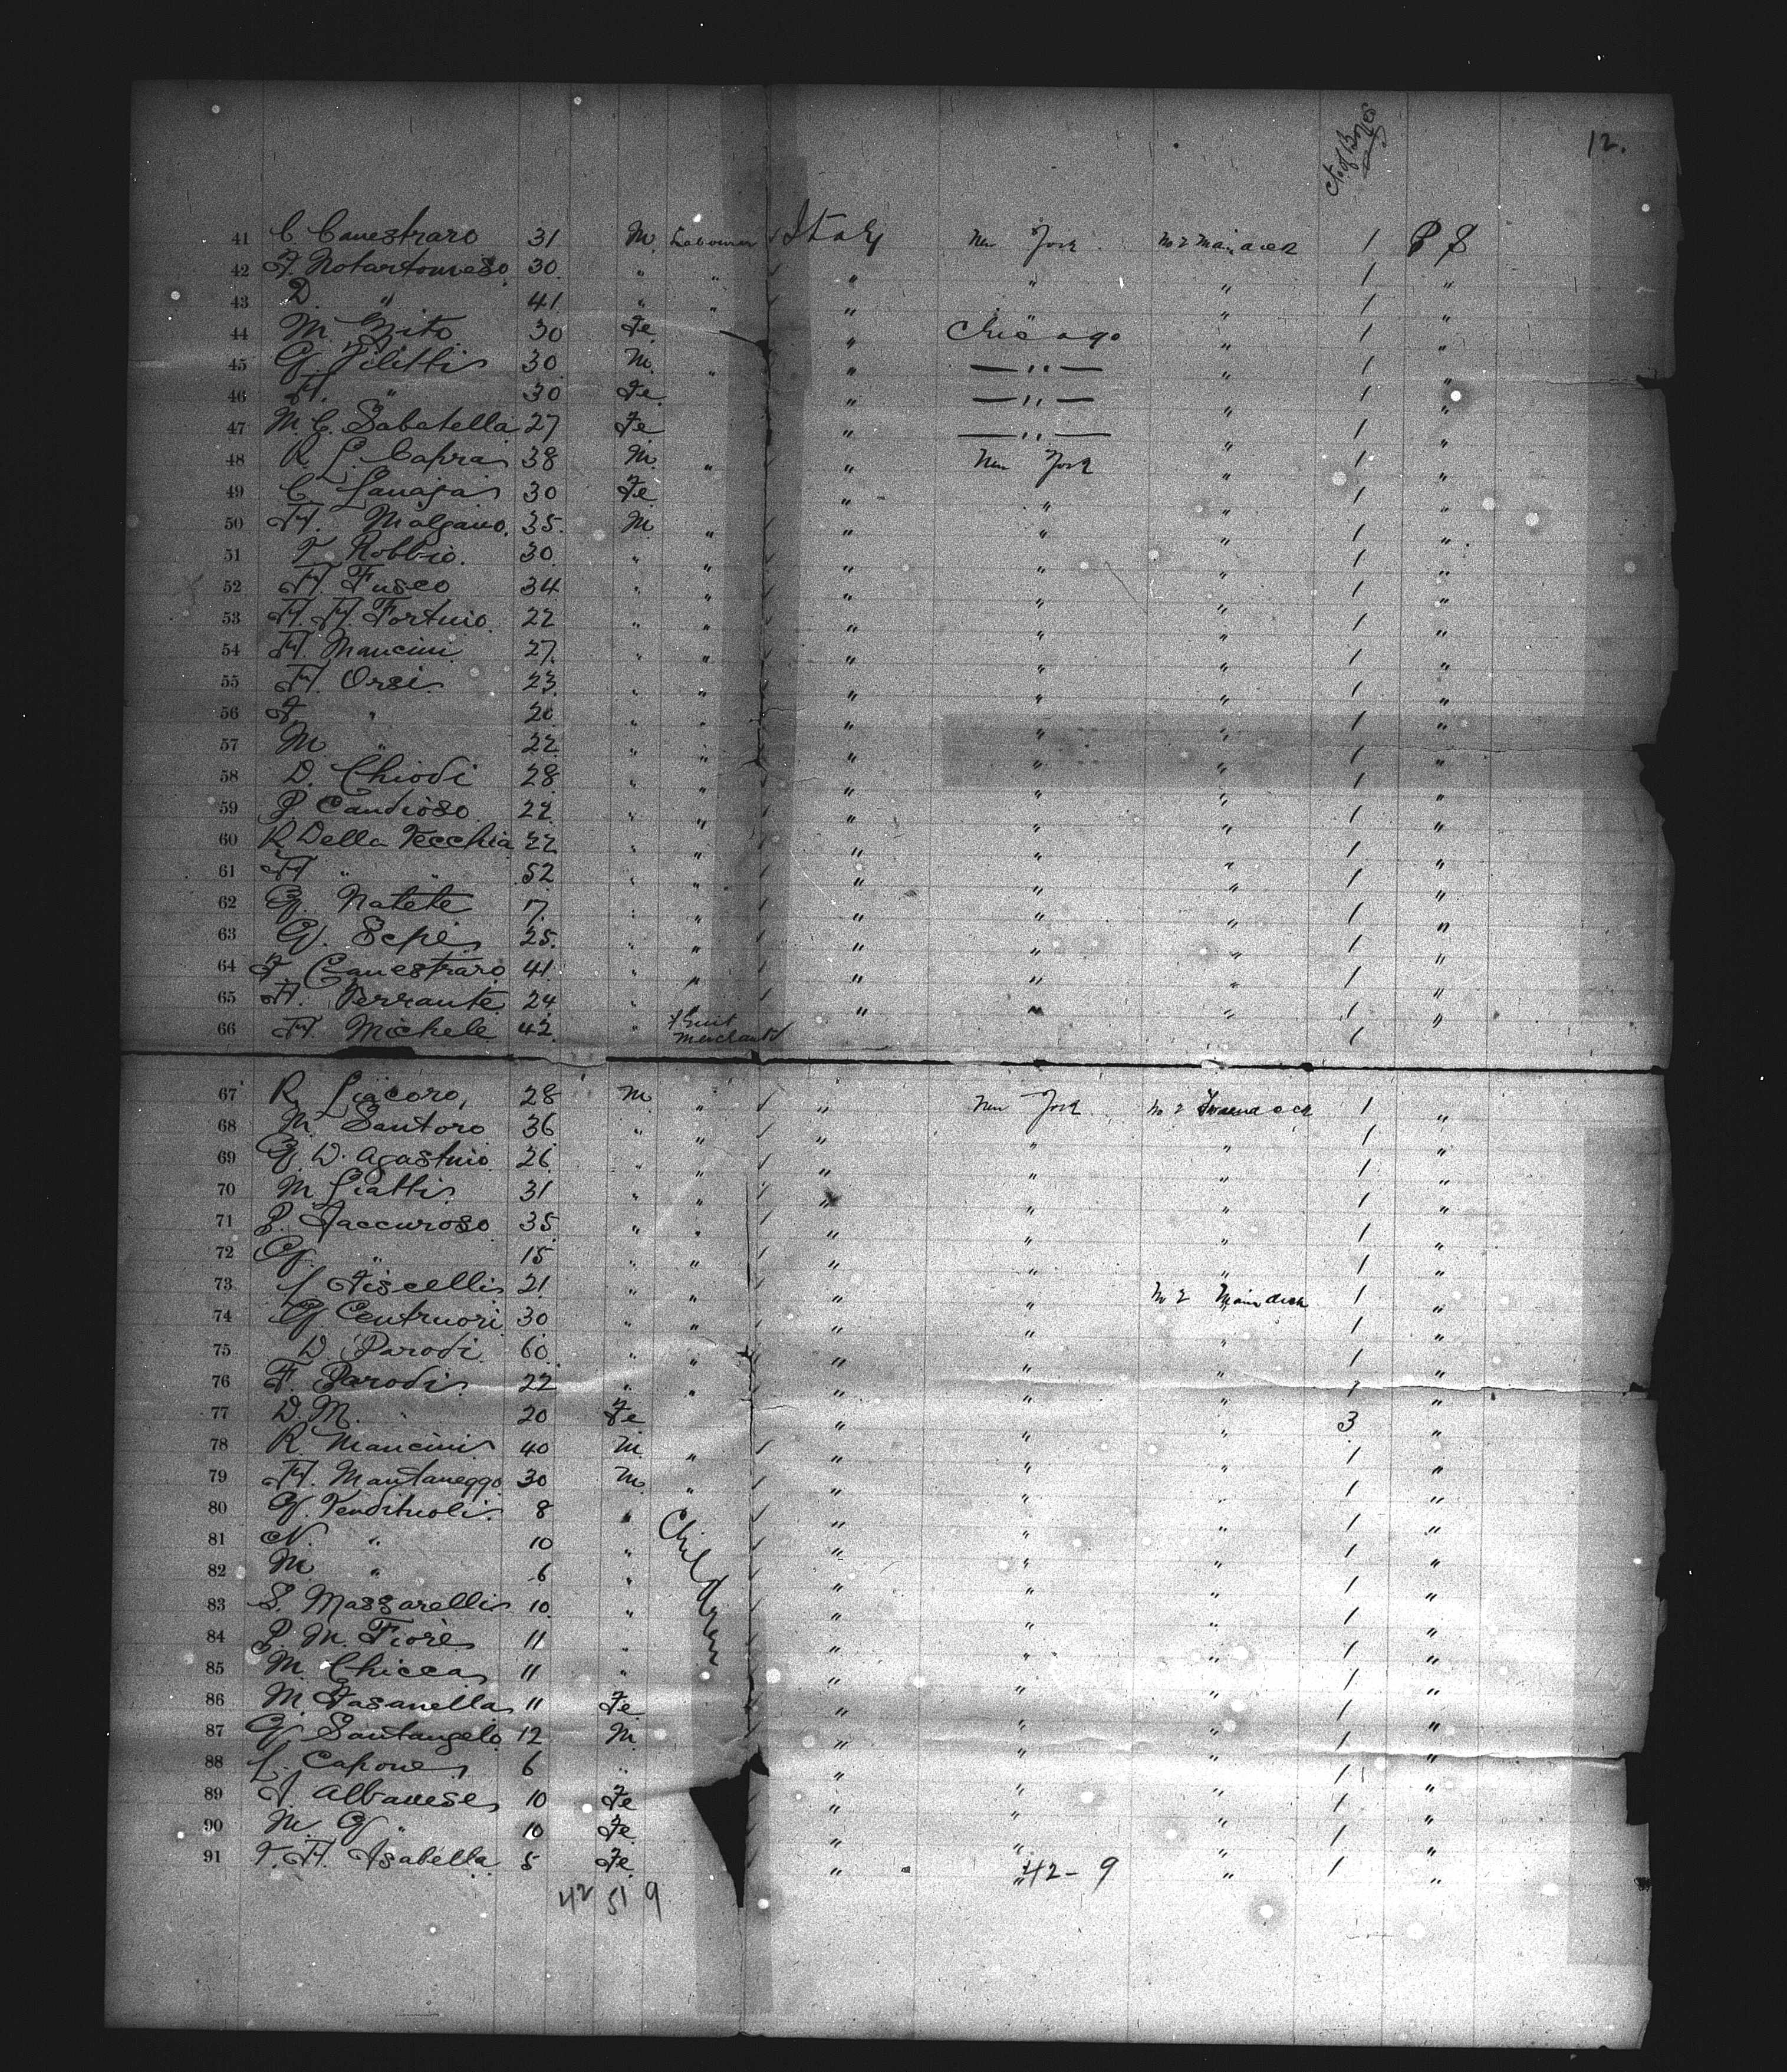 12.
41 C. Canestraro 31 M. Labourer ✓ Italy New York No 2 Main deck 1 P S
42 30. " " ✓ " " " 1 "
43 D. " 41. " " ✓ " " " 1 "
44 M. Zito 30 Fe. " Chicago " 1 "
45 G. Pilitti 30. M. " " — " — " 1 "
46 A. " 30 Fe. " — " — " 1 "
47 M. C. Sabatella 27 Fe " — " — " 1 "
48 R. L. Capra 38 M. " " New York " 1 "
49 C. 30 Fe " " " 1 "
50 A. Malgano. 35. M. " ✓ " " " 1 "
51 V. Robbio. 30. " " ✓ " " " 1 "
52 A. Fusco 34 " " ✓ " " " 1 "
53 A. A. Fortuio. 22 " " ✓ " " " 1 "
54 A. Mancini 27. " " ✓ " " " 1 "
55 A. Orsi 23. " " ✓ " " " 1 "
56 F. " 20 " " ✓ " " " 1 "
57 M " 22. " " ✓ " " " 1 "
58 D. Chiodi 28. " " ✓ " " " 1 "
59 P. Candioso. 22. " " ✓ " " " 1 "
60 R Della Vecchia 22 " " ✓ " " " 1 "
61 A " " 52 " " ✓ " " " 1 "
62 G. Natete 17. " " ✓ " " " 1 "
63 G. Sepe 25. " " ✓ " " " 1 "
64 F. Canestraro 41. " " ✓ " " " 1 "
65 A. Ferrante. 24. " " ✓ " " " 1 "
66 A. Michele 42. " Fruit Merchant ✓ 1
67 R. Liacoro, 28 M. " ✓ " New York No 2 1 "
68 M. Santoro 36 " " ✓ " " " 1 "
69 G. D. Agastnio. 26. " " ✓ " " " 1 "
70 M. Liatti 31 " " ✓ " " " 1 "
71 P. Iaccuroso 35. " " ✓ " " " 1 "
72 G. " 15 " " ✓ " " " 1 "
73 Fiscelli 21. " " ✓ " " No 2 Main deck 1 "
74 G. Centruori 30 " " ✓ " " " 1 "
75 D. Parodi. 60. " " ✓ " " " 1 "
76 F. Parodi 22 " " ✓ " " " 1 "
77 D. M. " 20 Fe " " " 3 "
78 R. Mancini 40 M. " ✓ " " " 1 "
79 A. Mantaneggo 30 M. " ✓ " " " 1 "
80 G. Vendituoli. 8 " Children ✓ " " " 1 "
81 N. " 10 " ✓ " " " 1 "
82 M. " 6 " ✓ " " " 1 "
83 S. Massarelli 10. " ✓ " " " 1 "
84 P. M. Fiore 11 " ✓ " " " 1 "
85 M. Chicca 11 " ✓ " " " 1 "
86 M. Fasanella 11 Fe ✓ " " " 1 "
87 G. Santangelo 12 M. ✓ " " " 1 "
88 L. Capone 6 " " " " 1 "
89 F. Albanese 10 Fe ✓ " " " 1 "
90 M. G. " 10 Fe. ✓ " " " 1 "
91 V. A. Isabella. 5 Fe. ✓ " " 42 - 9 " 1 "
42 51 9